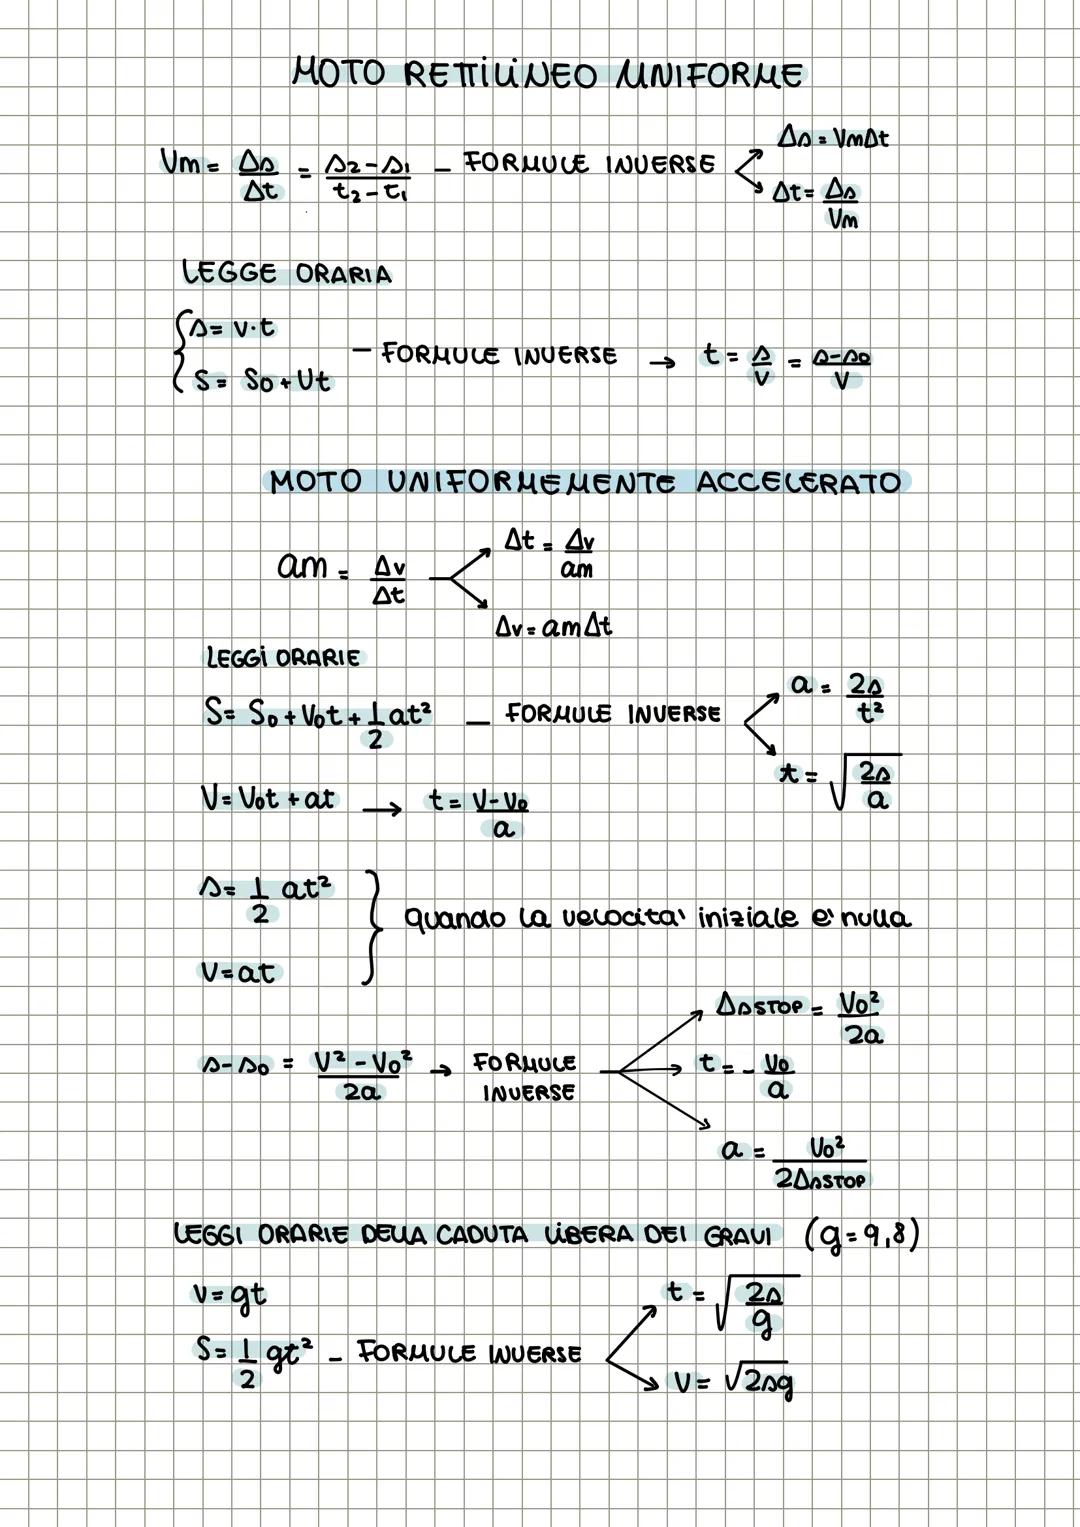 MOTO RETTILINEO UNIFORME
Vm = Δs/Δt = s₂-s₁/t₂-t₁ - FORMULE INVERSE
Δs = VmΔt
Δt = Δs/Vm
LEGGE ORARIA
s = v·t
S = S₀ + Vt
- FORMULE INVERSE → t = s/v = s-s₀/v
MOTO UNIFORMEMENTE ACCELERATO
am = Δv/Δt
Δt = Δv/am
Δv = amΔt
LEGGI ORARIE
S = S₀ + V₀t + 1/2 at² - FORMULE INVERSE
a = 2s/t²
t = √2s/a
V = V₀t + at → t = V-V₀/a
s = 1/2 at²
V = at
quando la velocita' iniziale e' nulla
s-s₀ = V²-V₀²/2a → FORMULE INVERSE
ΔsSTOP = V₀²/2a
t = - V₀/a
a = V₀²/2ΔsSTOP
LEGGI ORARIE DELLA CADUTA LIBERA DEI GRAVI (g=9,8)
v = gt
S = 1/2 gt² - FORMULE INVERSE
t = √2s/g
V = √2sg